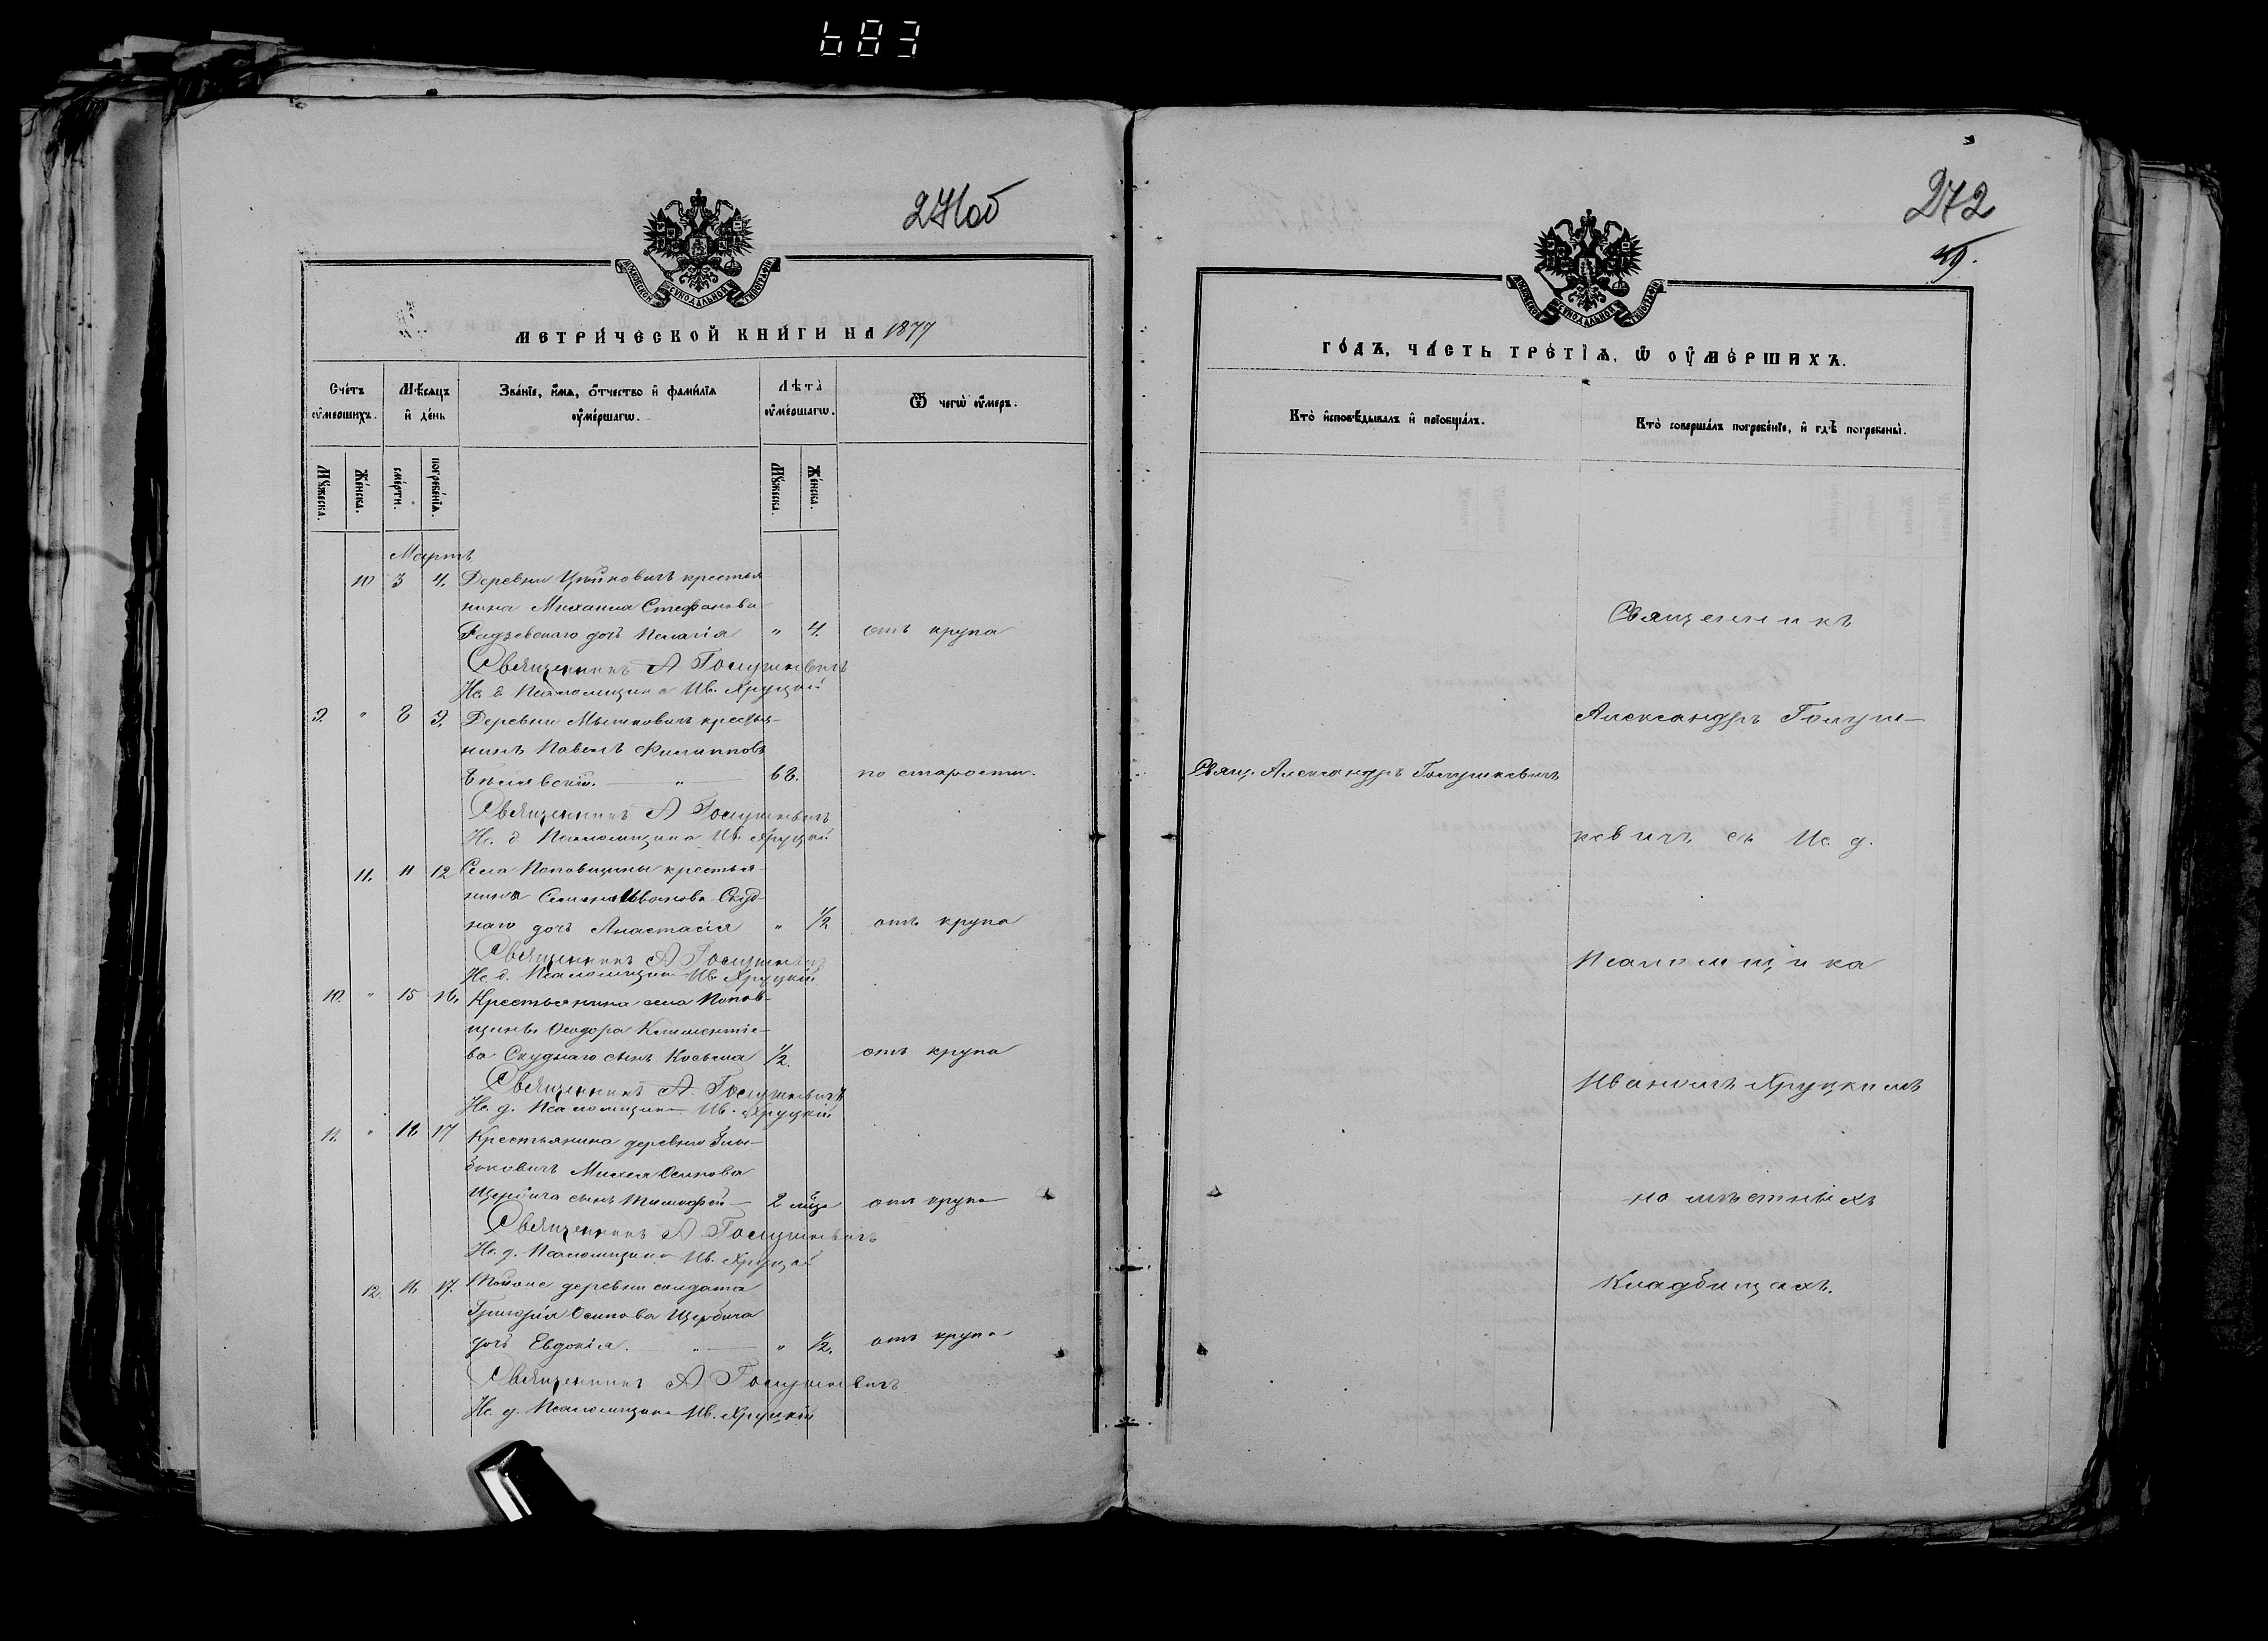 683
271об
МОСКОВСКОЙ СѴНОДАЛЬНОЙ ТИПОГРАФІИ
МЕТРИ́ЧЕСКОЙ КНИ́ГИ НА 1877
Сче́тъ ᲂу҆ме́ршихъ.
Мѣ́сяцъ и҆ де́нь
Зва́нїе, и҆́мѧ, ѻ҆́тчество и҆ фамѝлїѧ ᲂу҆ме́ршагѡ.
Лѣ́та ᲂу҆ме́ршагѡ.
Ѿ чегѡ̀ ᲂу҆́меръ.
Мꙋ́жеска.
Же́нска.
сме́рти.
погребе́нїѧ.
Мꙋ́жеска.
Же́нска.
Мартъ
10 3 4. Деревни крестья
нина Михаила Стефанова
Радзевскаго дочь Пелагія " 4. отъ крупа
Священникъ А Голушкевичъ
Ис. д. Псаломщика Ив. Хруцкій
9. " 8 9. Деревни Мышковичъ крестья-
нинъ Павелъ Филипповъ
Бѣлявскій. " 68. по старости.
Священникъ А Голушкевичъ
Ис. д. Псаломщика Ив. Хруцкій
11. 11 12 Села Поповщины крестья-
нина Семена Иванова Скуд-
наго дочь Анастасія " 1/2 отъ крупа
Священникъ А Голушкевичъ
Ис. д. Псаломщика Ив. Хруцкій
10. " 15 16. Крестьянина села Попов-
щины Ѳеодора Климентіе-
ва Скуднаго сынъ Косьма 1/2. отъ крупа
Священникъ А. Голушкевичъ
Ис. д. Псаломщика Ив. Хруцкій
11. " 16 17 Крестьянина деревни
Осипова
Щербича сынъ Тимофей 2 отъ крупа
Священникъ А Голушкевичъ
Ис. д. Псаломщика Ив. Хруцкій
12. 16 17. Тойже деревни солдата
Григорія Осипова Щербича
дочь Евдокія. " " 1/2. отъ крупа
Священникъ А Голушкевичъ
Ис. д. Псаломщика Ив. Хруцкій
272
МОСКОВСКОЙ СѴНОДАЛЬНОЙ ТИПОГРАФІИ
ГО́ДЪ, ЧА́СТЬ ТРЕ́ТЇѦ, Ѡ҆ ᲂУ҆МЕ́РШИХЪ.
Кто̀ и҆сповѣ́дывалъ и҆ прїобща́лъ.
Кто̀ соверша́лъ погребе́нїе, и҆ гдѣ̀ погребены̀.
Свящ. Александръ Голушкевичъ
Священникъ
Александръ Голуш-
кевичъ съ Ис. д.
Псаломщика
Иваномъ Хруцкимъ
на мѣстныхъ
Кладбищахъ.